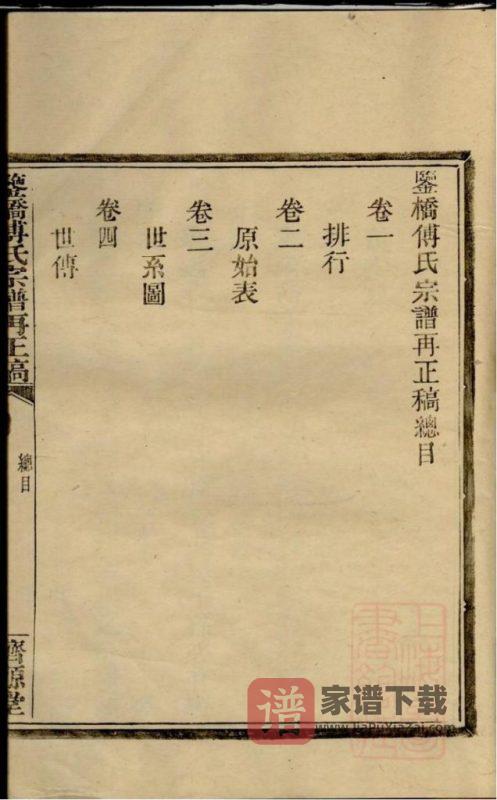 鑒橋傅氏宗譜再正稿總目
卷一
排行
卷二
原始表
卷三
世系圖
卷四
世傳
鑒橋傅氏宗譜再正稿
總目
齊源堂
谱
家谱下载
www.JiaPuXiaZai.com